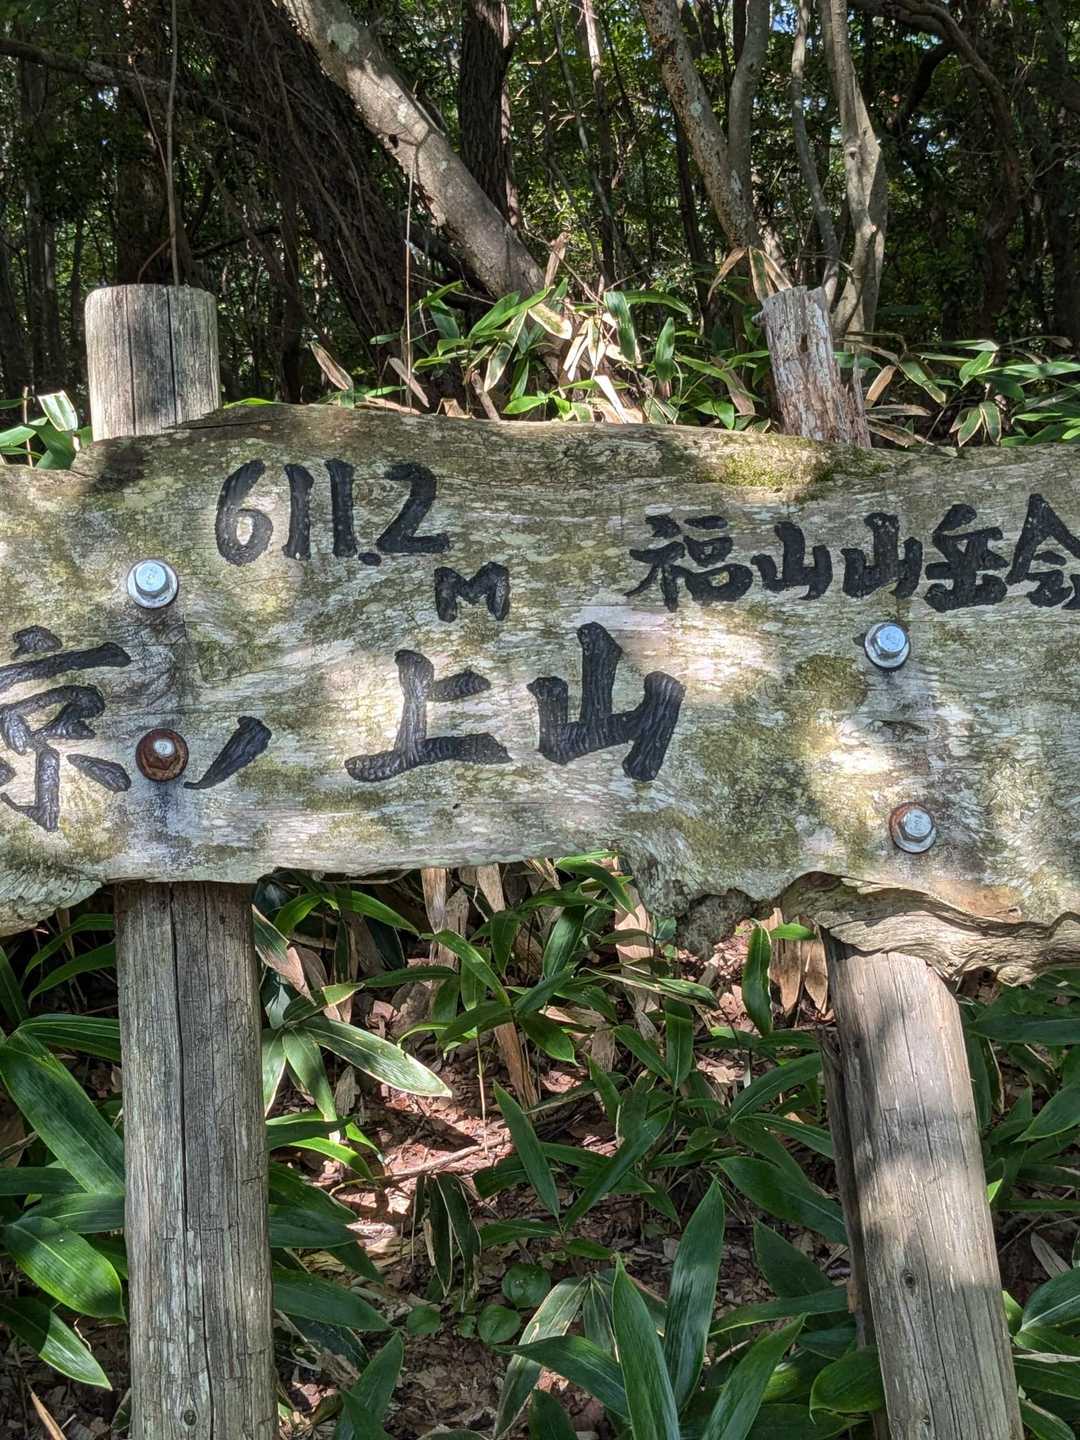 611.2
M
福山山岳会
京ノ上山